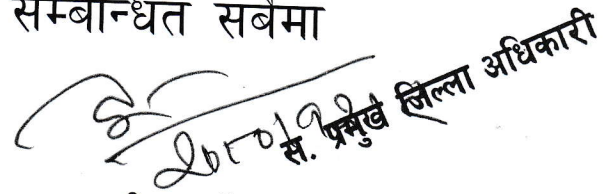 सम्बन्धित सबैमा
स. प्रमुख जिल्ला अधिकारी